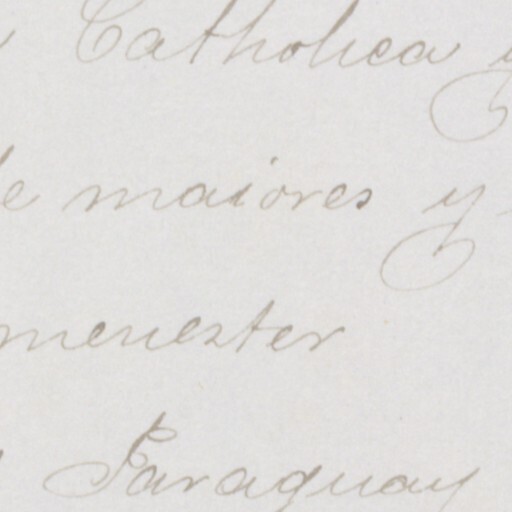 Catholica y
de maiores y
menester
Paraguay